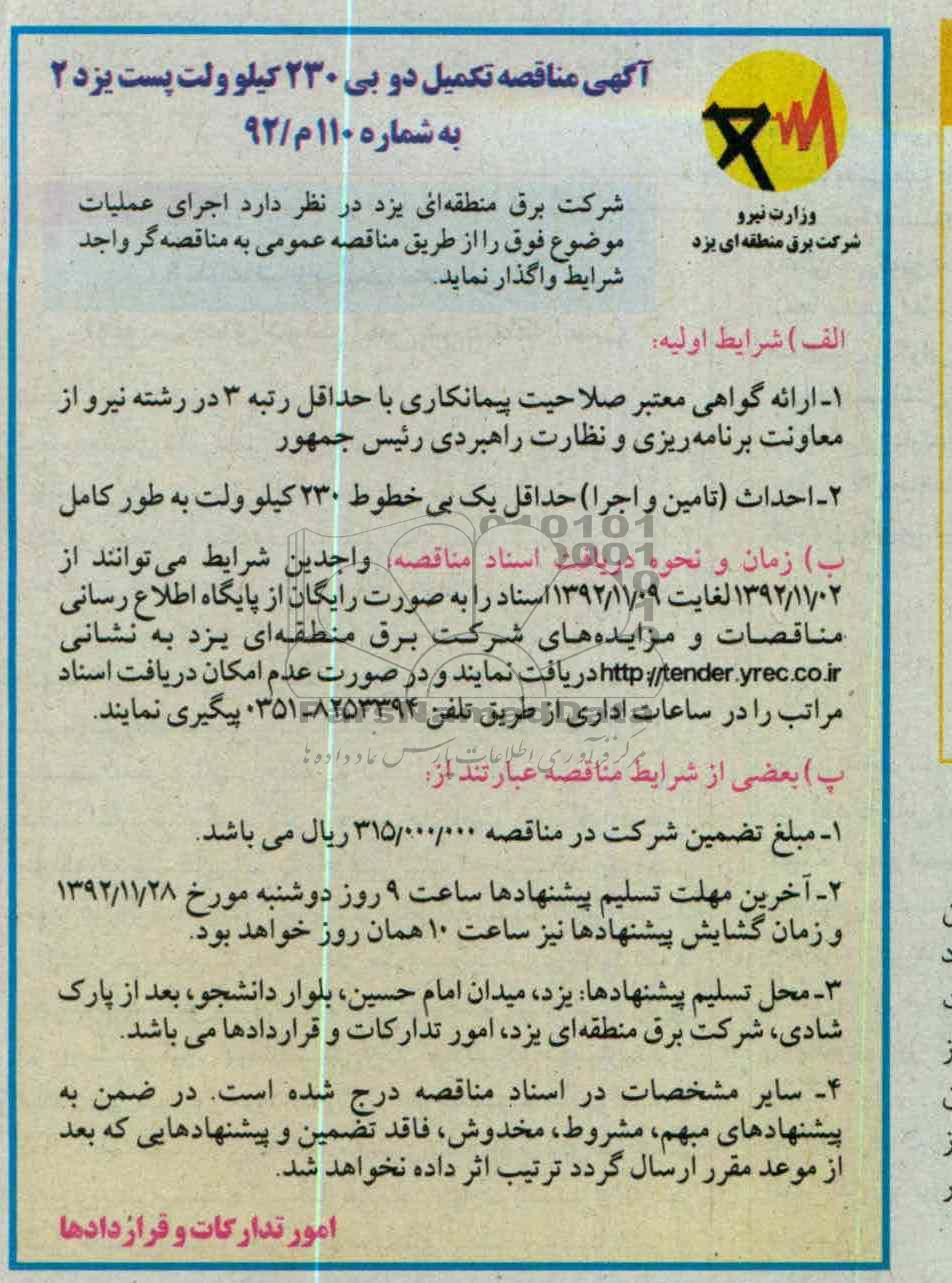 آگهی مناقصه تکمیل دو بی ۲۳۰ کیلو ولت پست یزد ۲
به شماره ۱۱۰م/۹۲
وزارت نیرو
شرکت برق منطقه ای یزد
شرکت برق منطقه‌ای یزد در نظر دارد اجرای عملیات
موضوع فوق را از طریق مناقصه عمومی به مناقصه‌گر واجد
شرایط واگذار نماید.
الف) شرایط اولیه:
۱- ارائه گواهی معتبر صلاحیت پیمانکاری با حداقل رتبه ۳ در رشته نیرو از
معاونت برنامه‌ریزی و نظارت راهبردی رئیس جمهور
۲- احداث (تامین و اجرا) حداقل یک بی خطوط ۲۳۰ کیلو ولت به طور کامل
ب) زمان و نحوه دریافت اسناد مناقصه: واجدین شرایط می‌توانند از
۱۳۹۲/۱۱/۰۲ لغایت ۱۳۹۲/۱۱/۰۹ اسناد را به صورت رایگان از پایگاه اطلاع رسانی
مناقصات و مزایده‌های شرکت برق منطقه‌ای یزد به نشانی
http://tender.yrec.co.ir دریافت نمایند و در صورت عدم امکان دریافت اسناد
مراتب را در ساعات اداری از طریق تلفن ۸۲۵۳۳۹۴-۰۳۵۱ پیگیری نمایند.
ParsNamadData
مرکز فرآوری اطلاعات پارس نماد داده ها
پ) بعضی از شرایط مناقصه عبارتند از:
۱- مبلغ تضمین شرکت در مناقصه ۳۱۵/۰۰۰/۰۰۰ ریال می باشد.
۲- آخرین مهلت تسلیم پیشنهادها ساعت ۹ روز دوشنبه مورخ ۱۳۹۲/۱۱/۲۸
و زمان گشایش پیشنهادها نیز ساعت ۱۰ همان روز خواهد بود.
۳- محل تسلیم پیشنهادها: یزد، میدان امام حسین، بلوار دانشجو، بعد از پارک
شادی، شرکت برق منطقه‌ای یزد، امور تدارکات و قراردادها می باشد.
۴- سایر مشخصات در اسناد مناقصه درج شده است. در ضمن به
پیشنهادهای مبهم، مشروط، مخدوش، فاقد تضمین و پیشنهادهایی که بعد
از موعد مقرر ارسال گردد ترتیب اثر داده نخواهد شد.
امور تدارکات و قراردادها